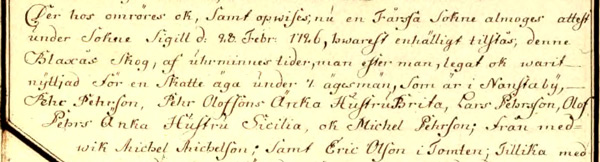 Der hos omröres ok, samt opwises, nu en Färssa Sokne almoges attest
under Sokne Sigill d: 28. Febr: 1726, hwarest enhälligt tilstås, denne
Blaxås Skog, af uhrminnes tider, man efter man, legat ok warit
nyttjad för en Skatte äga under 7. ägesmän, som är i Nanstaby,
Pehr Pehrson, Pehr Olofsons Änka Hustru Brita, Lars Pehrsson, Olof
Pehrs Änka Hustru Sicilia, ok Michel Pehrson; från med-
wik Michel Michelson; samt Eric Olson i Tomten; Tillika med